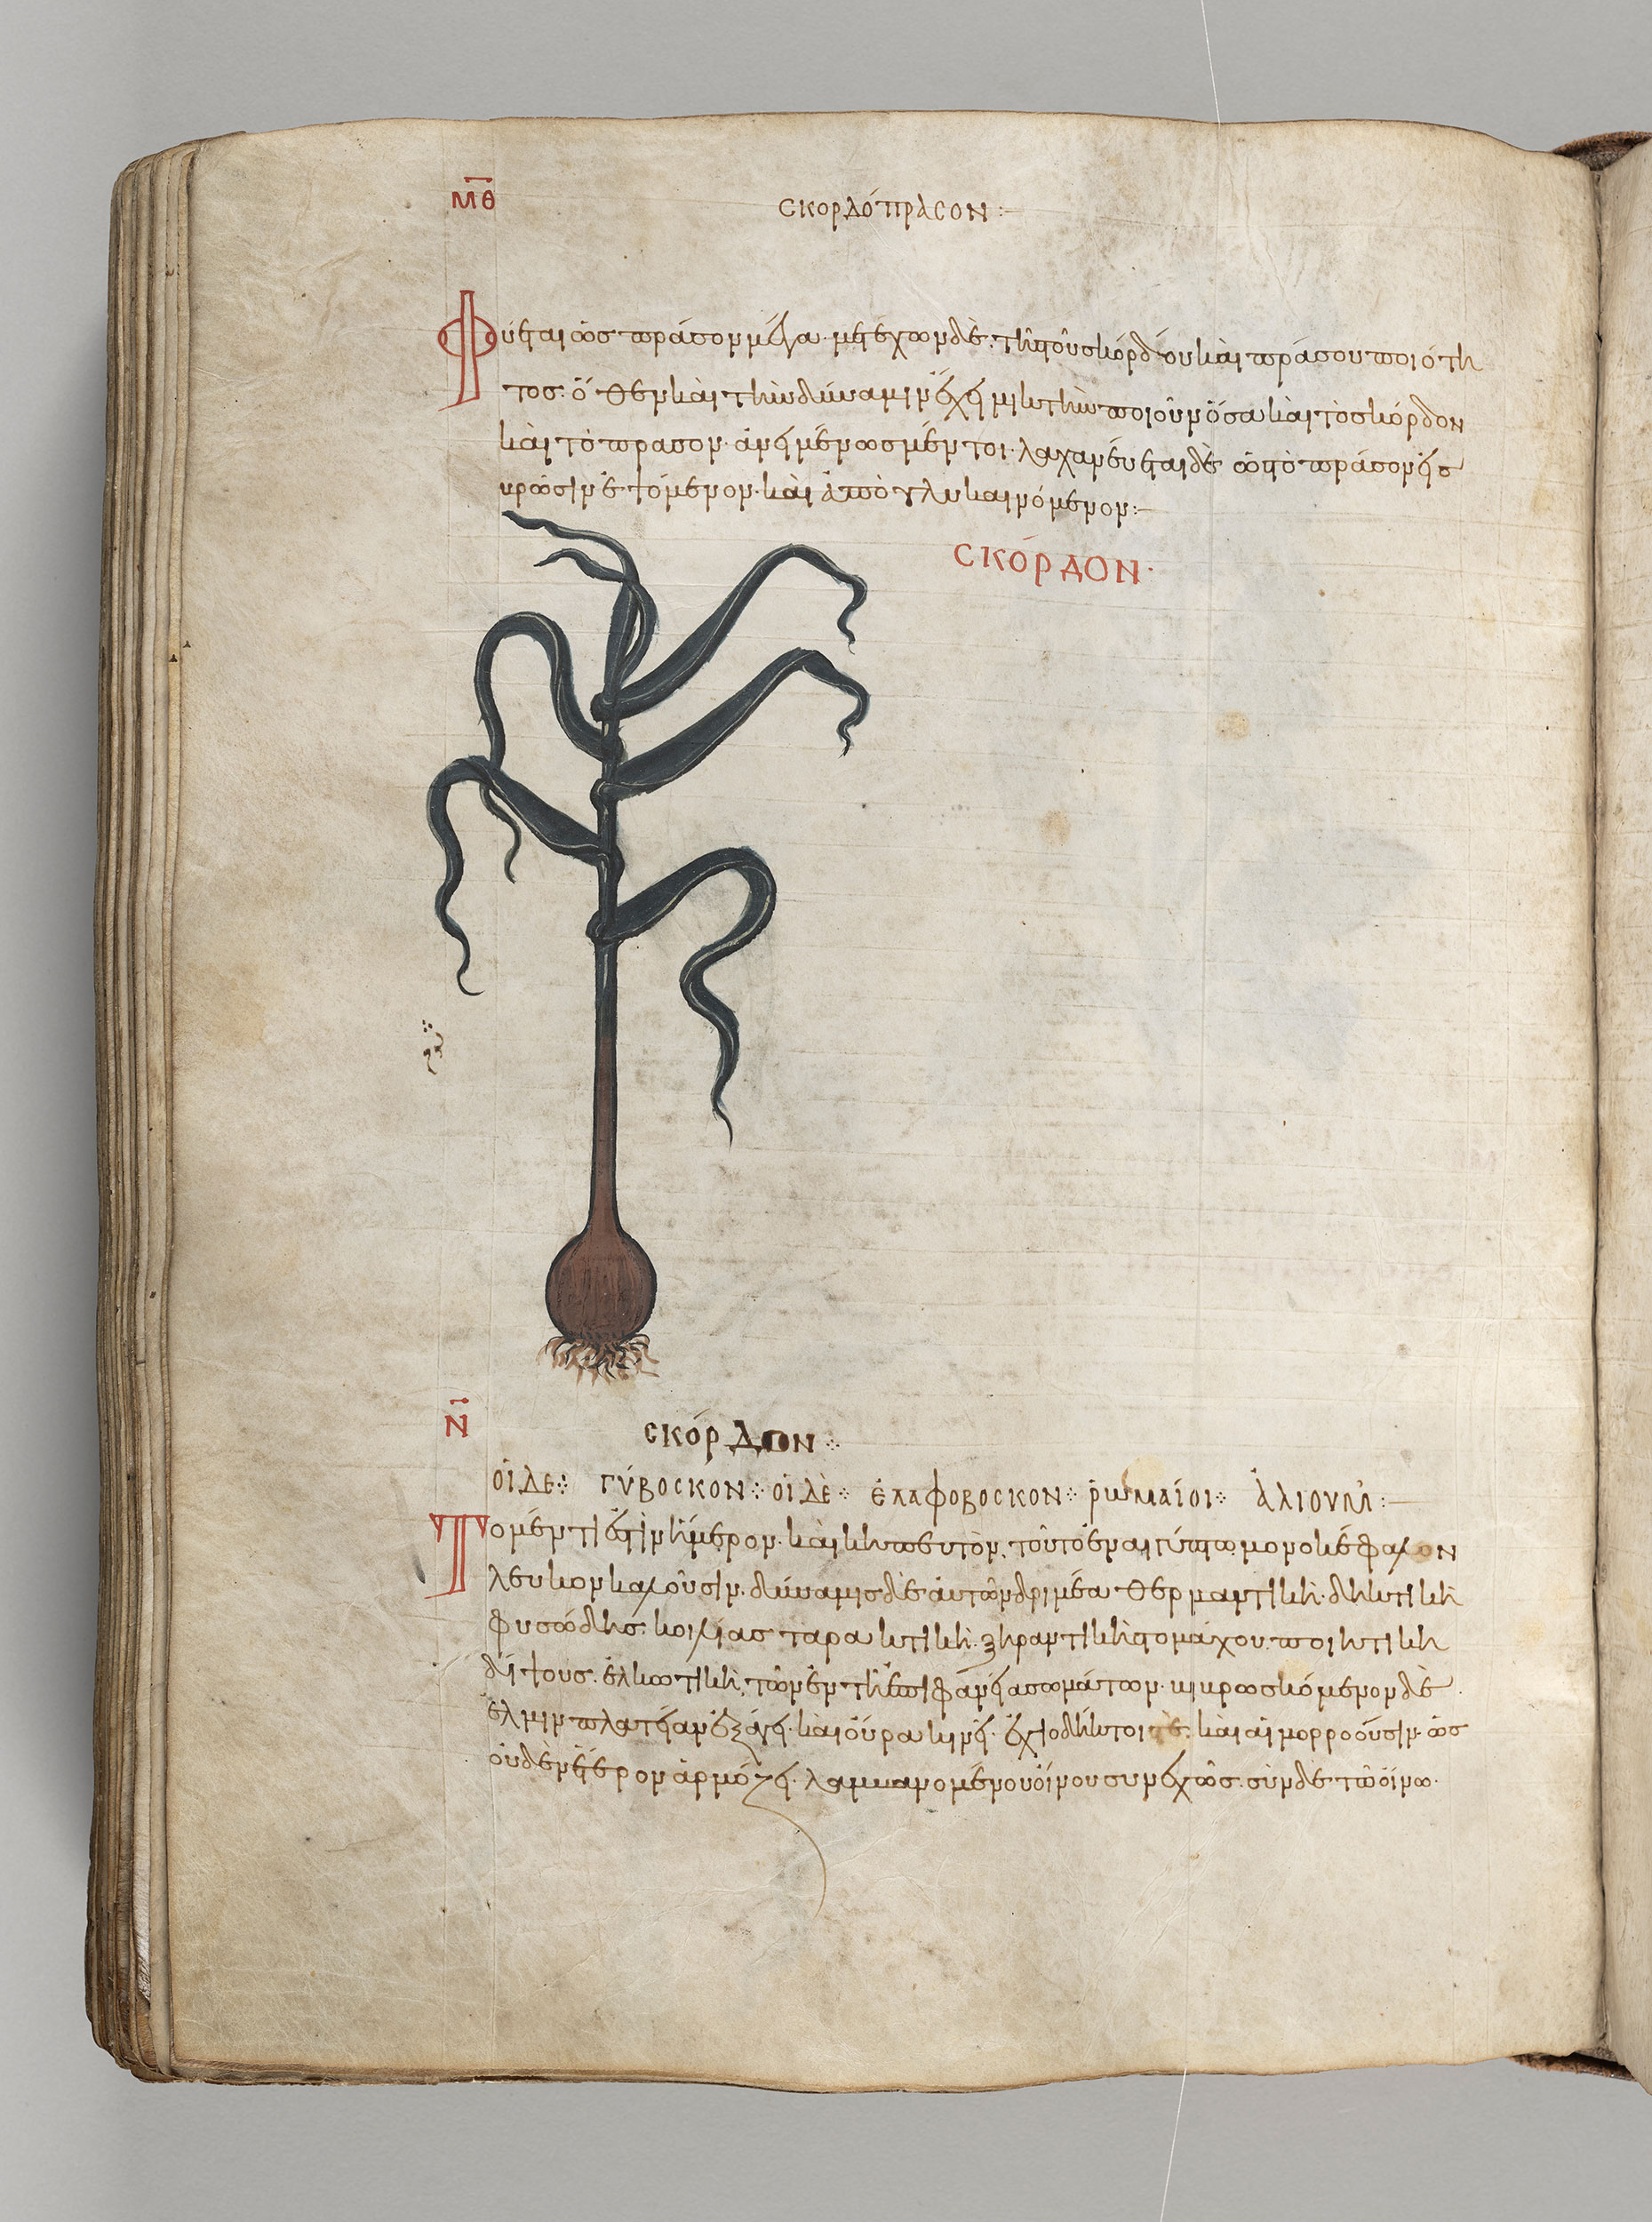 ΜΘ
ΣΚΟΡΔΌΠΡΑΣΟΝ :—
Φύεται ὡς πράσον μέγα· μετέχων δὲ· τῆς τοῦ σκόρδου καὶ πράσου ποιότη
τος· ὅθεν καὶ τὴν δύναμιν ἔχει μικτὴν ποιοῦν ὅσα καὶ τὸ σκόρδον
καὶ τὸ πρασον· ἀνειμένως μέντοι· λαχανεύεται δὲ ὡς τὸ πράσον εἰς
βρῶσιν ἑψόμενον· καὶ ἀπογλυκαινόμενον:—
ΣΚΌΡΔΟΝ·
Ν
ΣΚΌΡΔΟΝ
ΟἹ ΔΕ ΓΎΒΟΣΚΟΝ ΟἹ ΔῈ ἘΛΑΦΟΒΟΣΚΟΝ ῬΩΜΑΊΟΙ ἈΛΙΟΥΜ :—
Τὸ μέν τί ἐστιν ἥμερον· καὶ κηπευτὸν· τοῦτο ἐν αἰγύπτω μονοκέφαλον
λευκον καλοῦσιν· δύναμις δὲ αὐτῶν δριμέα θερμαντικὴ· δηκτικὴ
φυσώδης· κοιλίας ταρακτικὴ· ξηραντικὴ στομάχου· ποιητικὴ
δίψους· ἑλκωτικὴ τῶν ἐν τῆ ἐπιφανεία σωμάτων· βιβρωσκόμενον δὲ
ἕλμιν πλατείαν ἐξάγει· καὶ οὖρα κινεῖ· ἐχιοδήκτοις τὲ· καὶ αἱμορροοῦσιν· ὡς
οὐδὲν ἕτερον ἁρμόζει· λαμβανομένου οἴνου συνεχῶς· σὺν δὲ τῶ οἴνω·